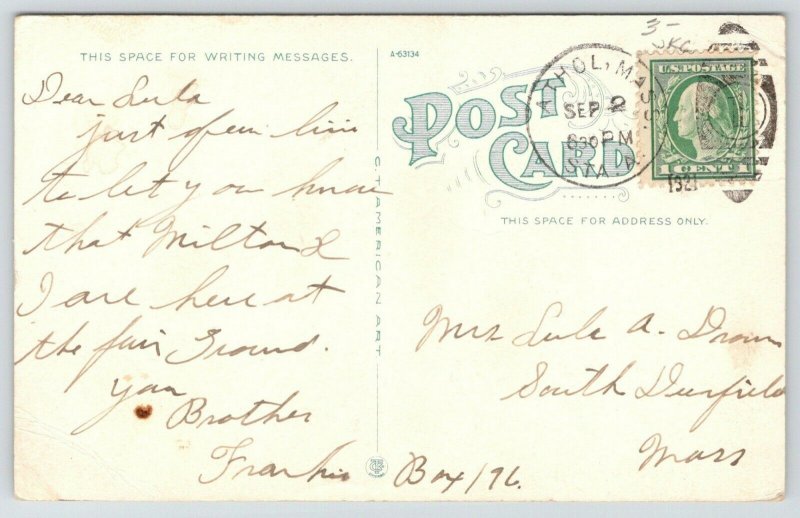 THIS SPACE FOR WRITING MESSAGES.
A-63134
POST
CARD
THIS SPACE FOR ADDRESS ONLY.
C.T. AMERICAN ART
3-
ATHOL, MASS.
SEP 2
630 PM
STA. A.
1921
U.S. POSTAGE
1 CENT 1
Dear Lula
just a few line
to let you know
that Milton &
I are here at
the fair Ground.
your
Brother
Frankie
Mrs Lula A.
South Deerfield
Mass
Box 196.